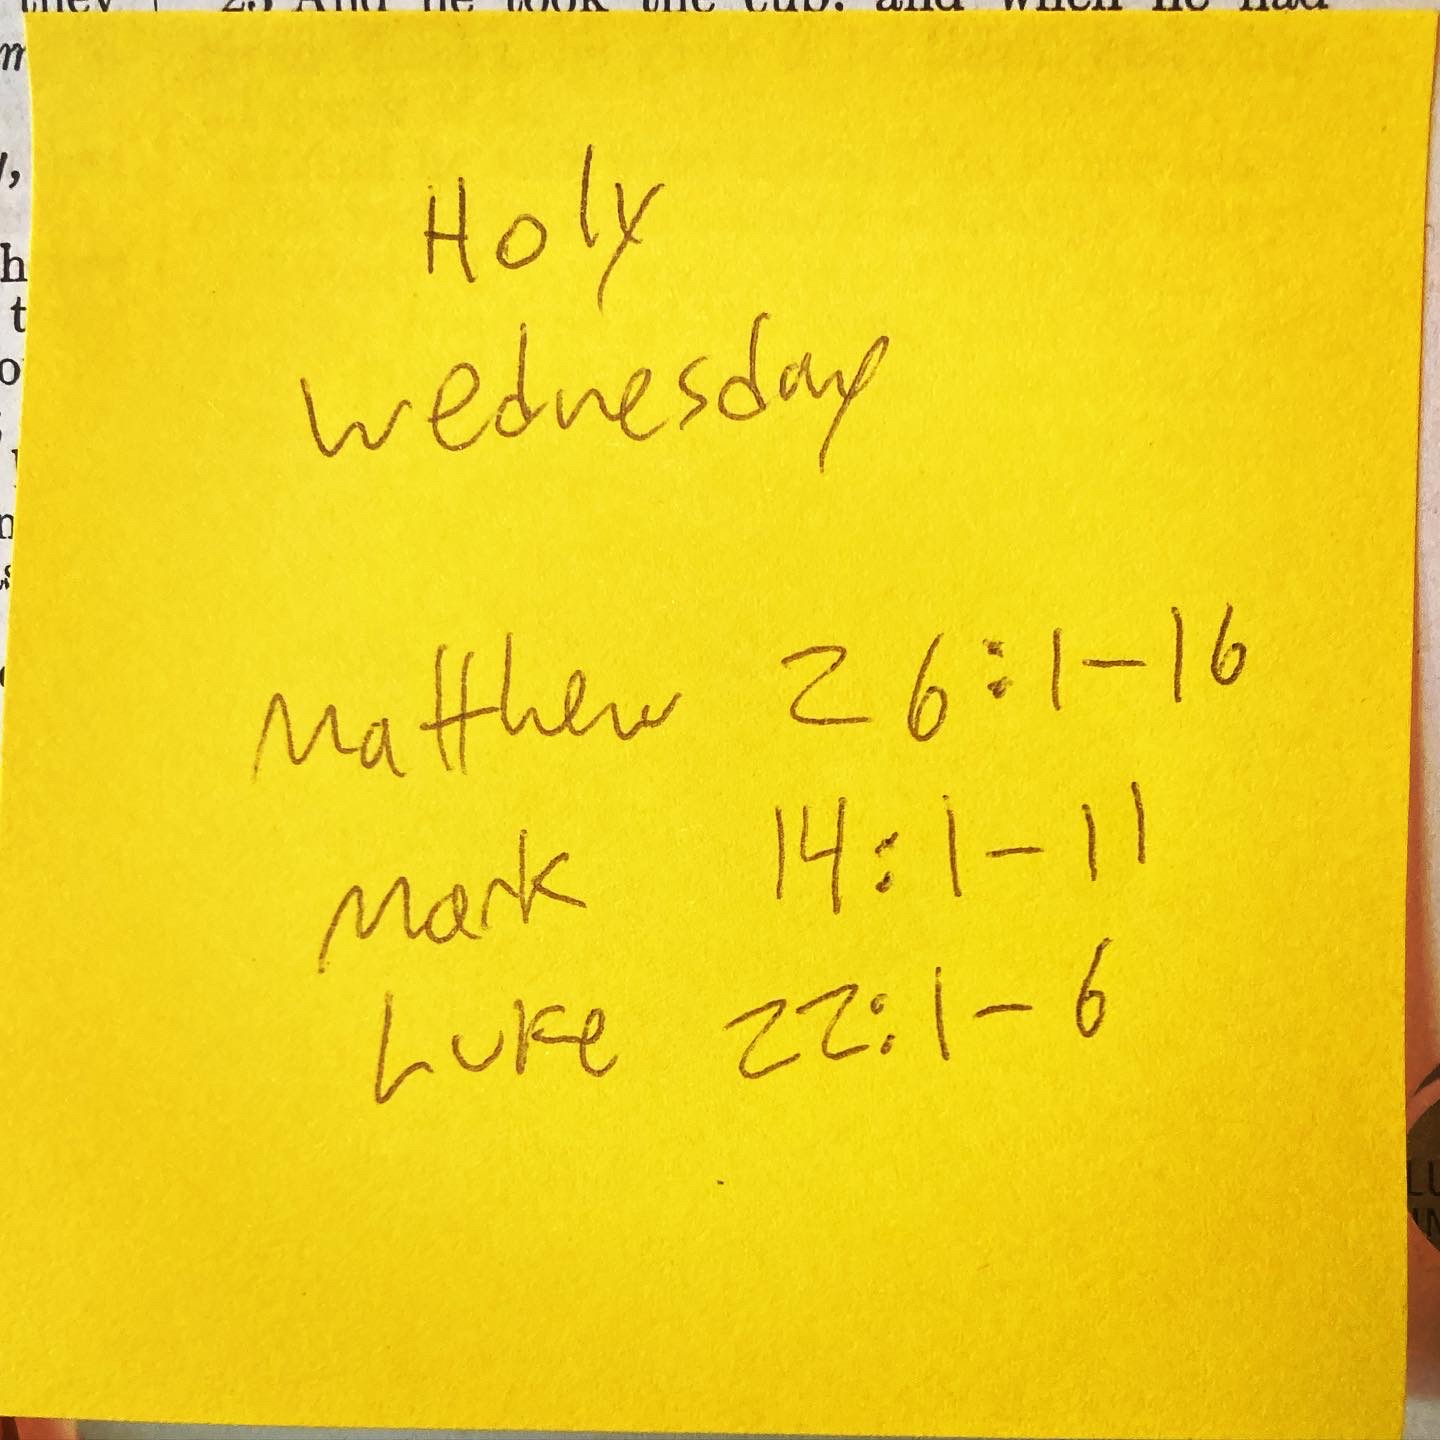 they 23 And he took the cup, and when he had
m
y,
h
t
o
n
Holy
Wednesday
Matthew 26:1-16
Mark 14:1-11
Luke 22:1-6
LU
IN